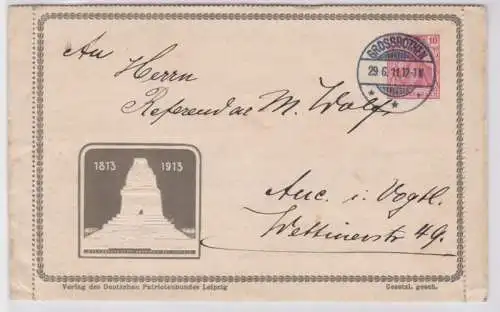 An
Herrn
Referendar M. Wolf
Aue i. Vogtl.
Wettinerstr 49.
GROSSBOTHEN
29 6. 11. 12-1 N
10
1813 1913
Verlag des Deutschen Patriotenbundes Leipzig
Gesetzl. gesch.